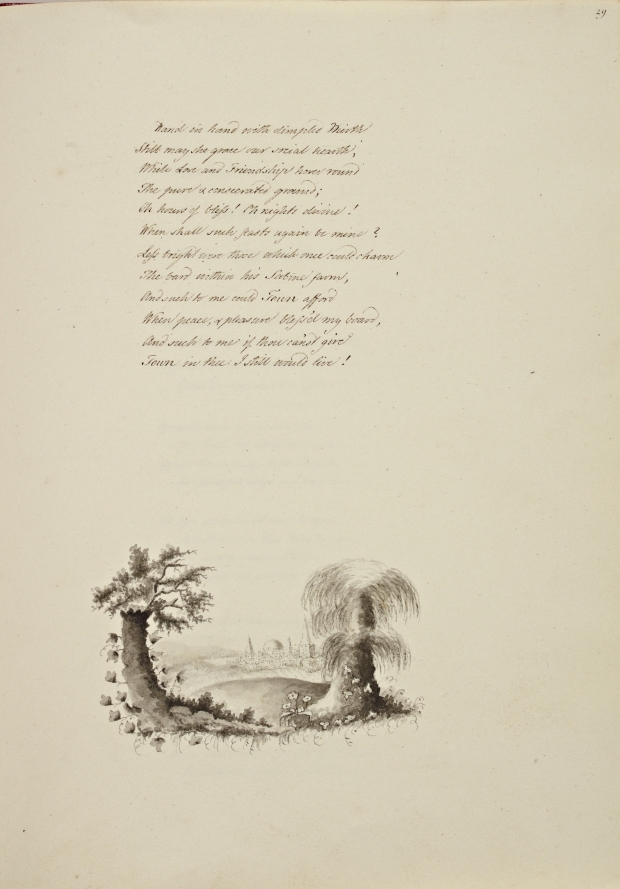 49
Hand in hand with dimpled Mirth
Still may she grace our social hearth,
While Love and Friendship hover round
The pure & consecrated ground;
Oh hours of bliss! Oh nights divine!
When shall such feasts again be mine?
Less bright were those which once could charm
The bard within his Sabine farm,
And such to me could Town afford
When peace, & pleasure bless'd my board,
And such to me if thou canst give
Town in thee I still would live!